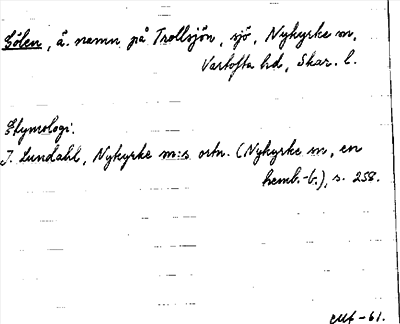 Gölen, ä. namn på Trollsjön, sjö, Nykyrke sn,
Vartofta hd, Skar. l.
Etymologi.
I. Lundahl, Nykyrke sn:s ortn. (Nykyrke sn, en
hemb.-b.), s. 258.
-61.